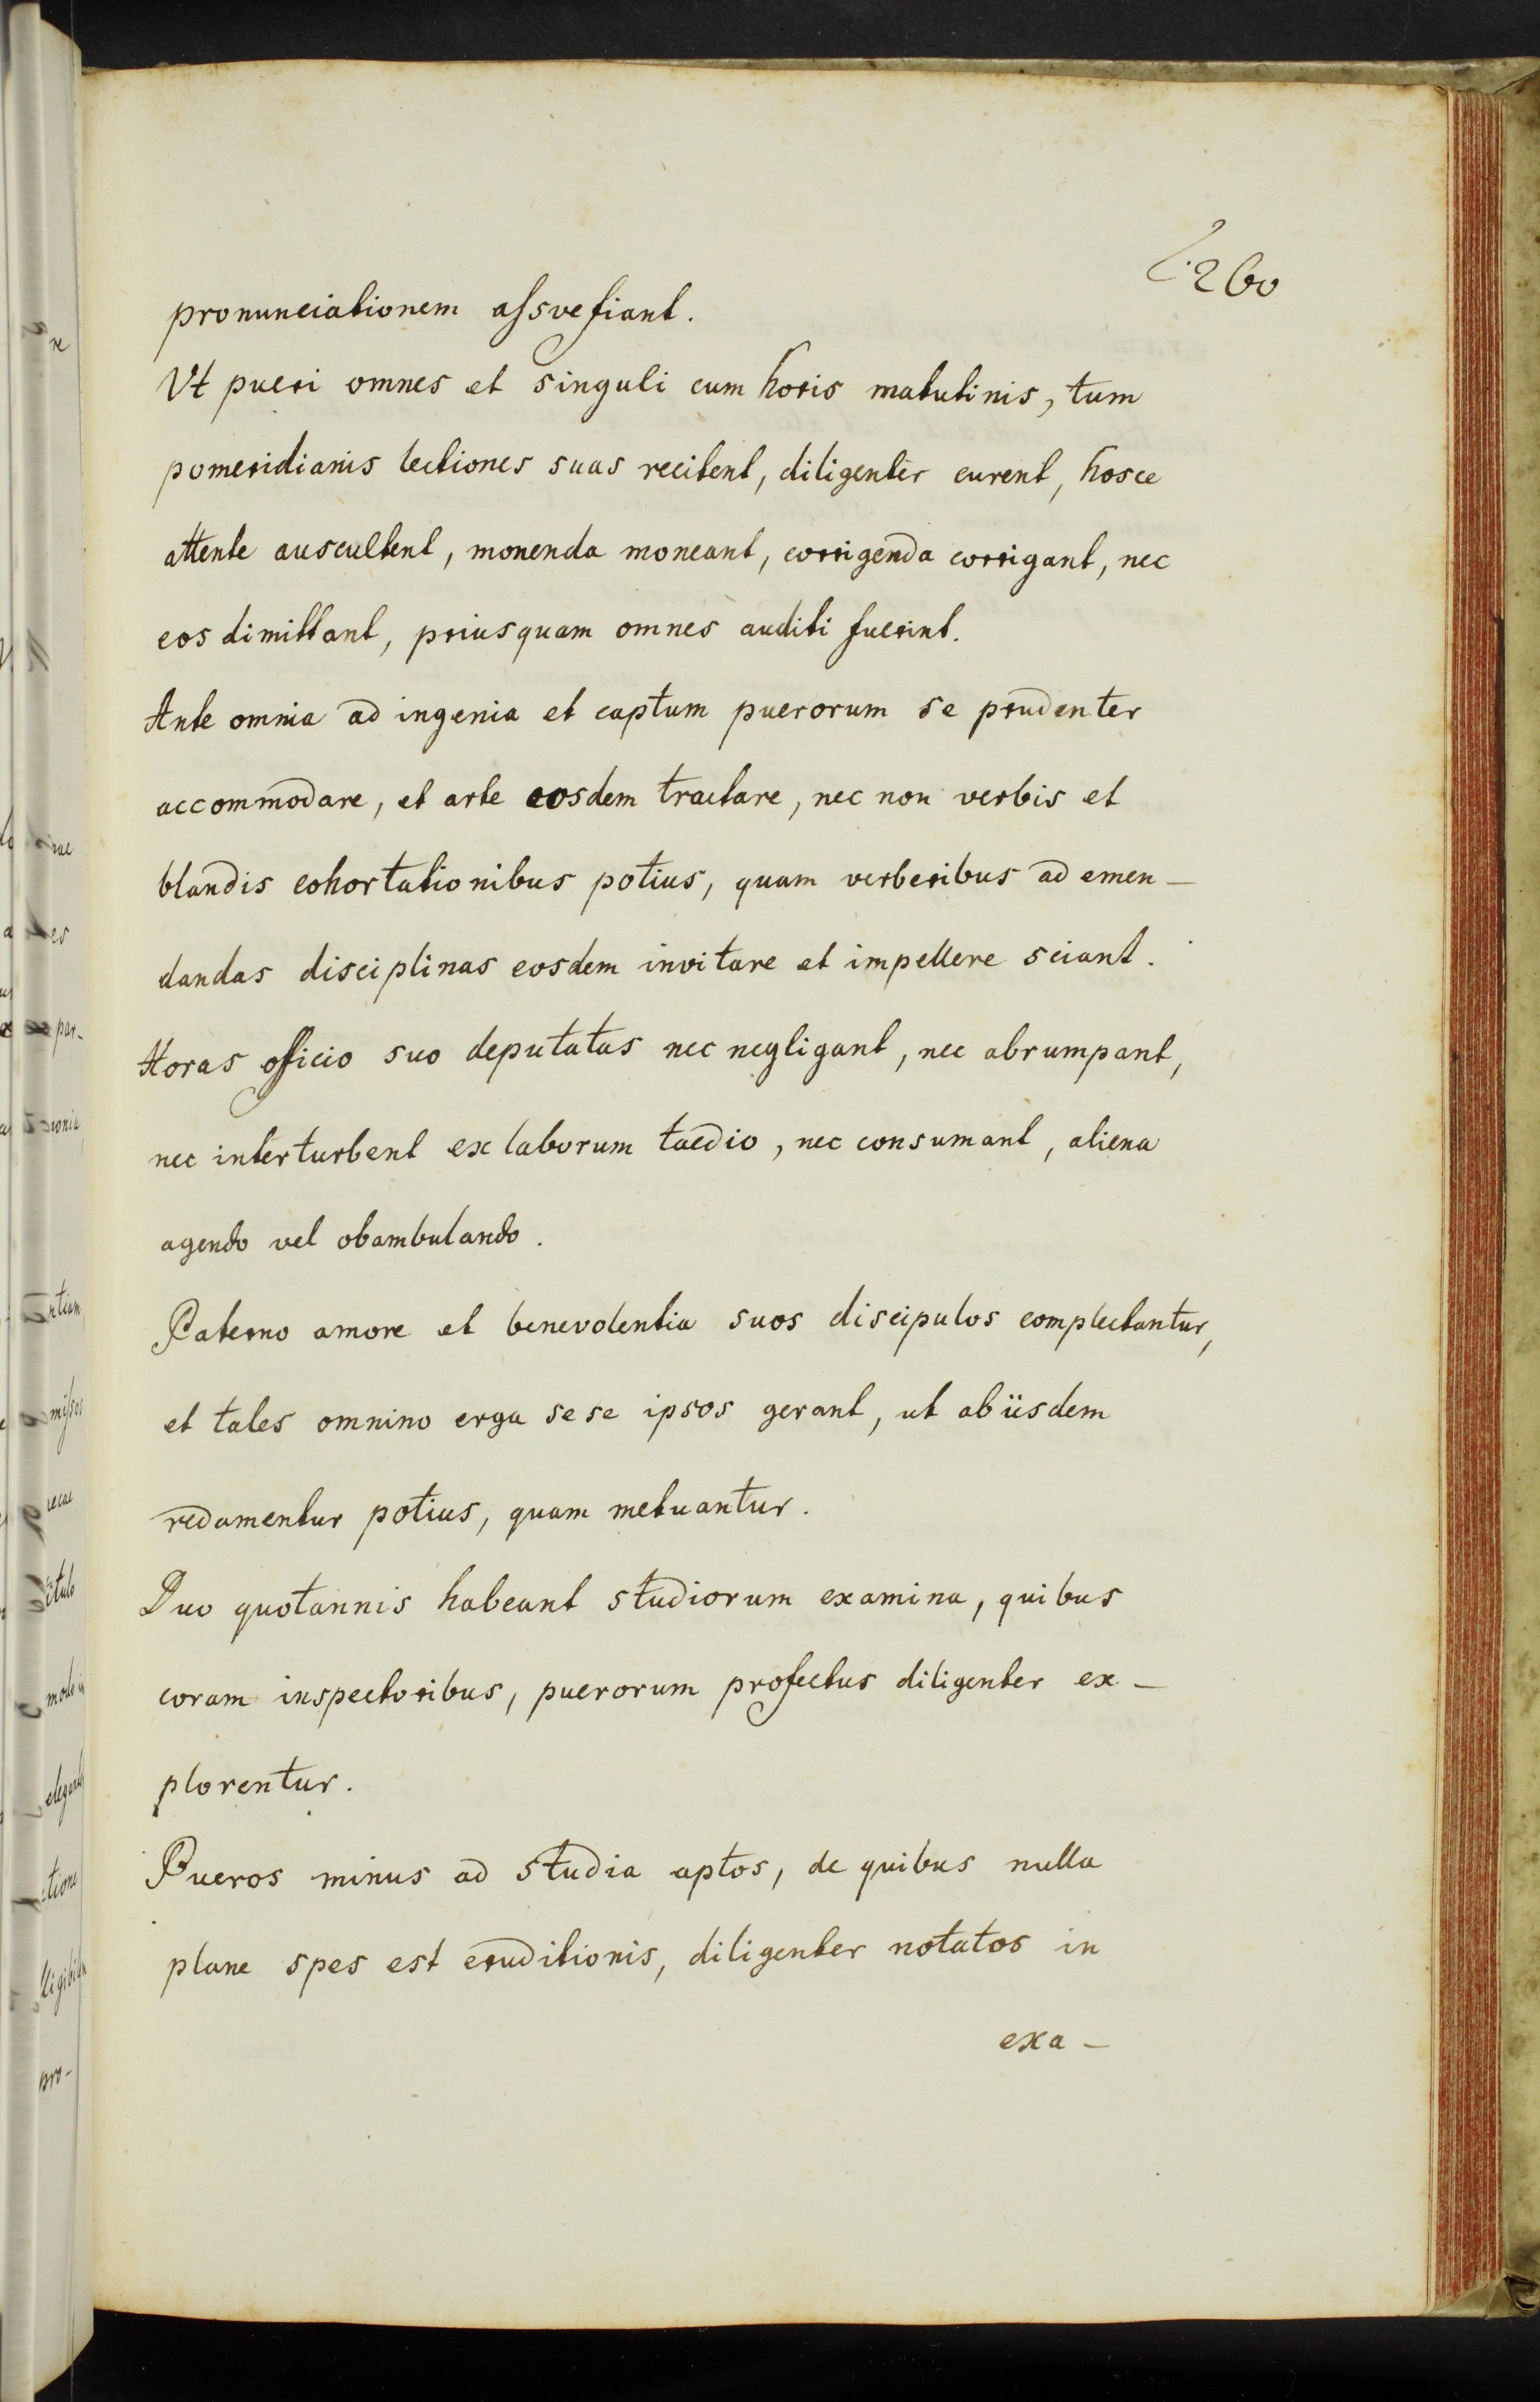 260
pronunciationem assvefiant.
Vt pueri omnes et singuli cum horis matutinis, tum
pomeridianis lectiones suas recitent, diligenter curent, hosce
attente auscultent, monenda moneant, corrigenda corrigant, nec
eos dimittant, priusquam omnes auditi fuerint.
Ante omnia ad ingenia et captum puerorum se prudenter
accommodare, et arte eosdem tractare, nec non verbis et
blandis cohortationibus potius, quam verberibus ad emen-
dandas disciplinas eosdem invitare et impellere sciant.
Horas officio suo deputatas nec negligant, nec abrumpant,
nec interturbent ex laborum taedio, nec consumant, aliena
agendo vel obambulando.
Paterno amore et benevolentia suos discipulos complectantur,
et tales omnino erga sese ipsos gerant, ut ab iisdem
redamentur potius, quam metuantur.
Duo quotannis habeant studiorum examina, quibus
coram inspectoribus, puerorum profectus diligenter ex-
plorentur.
Pueros minus ad studia aptos, de quibus nulla
plane spes est eruditionis, diligenter notatos in
exa-